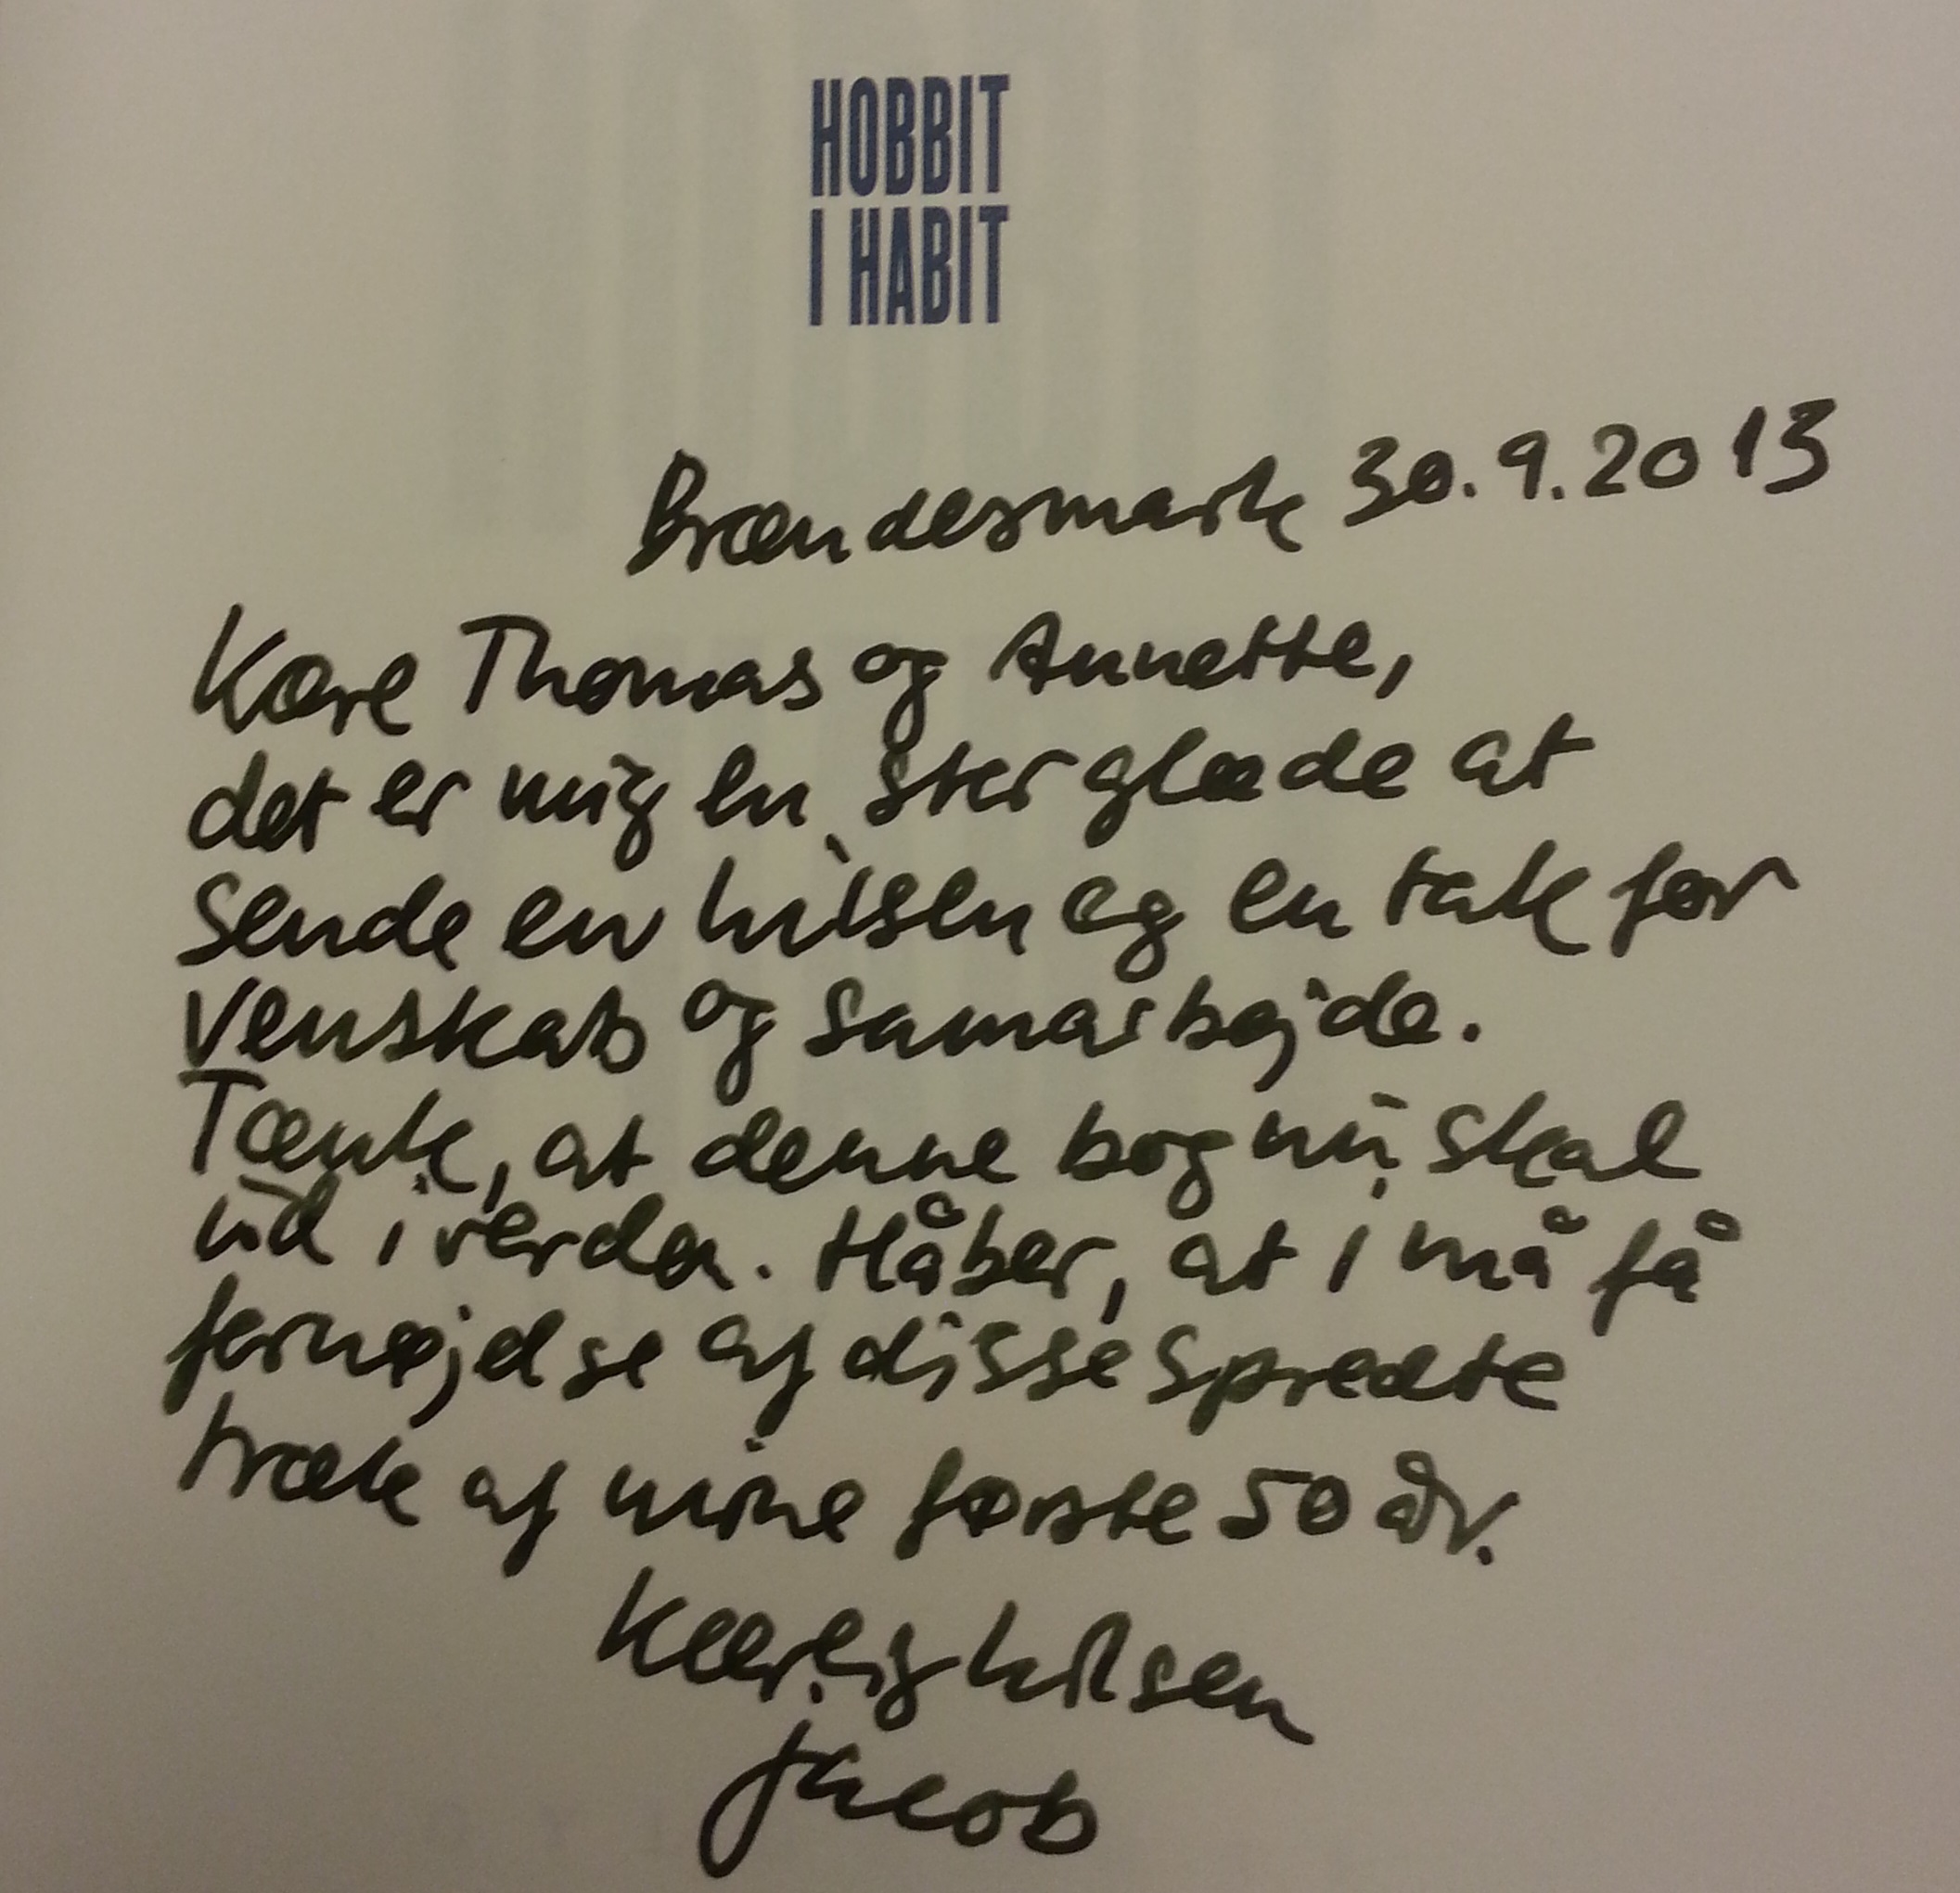 HOBBIT
I HABIT
Brændesmark 30.9.2013
Kære Thomas og Annette,
det er mig en stor glæde at
sende en hilsen og en tak for
venskab og samarbejde.
Tænk, at denne bog nu skal
ud i verden. Håber, at i må få
fornøjelse af disse spredte
træk af mine første 50 år.
Kærlig hilsen
Jacob